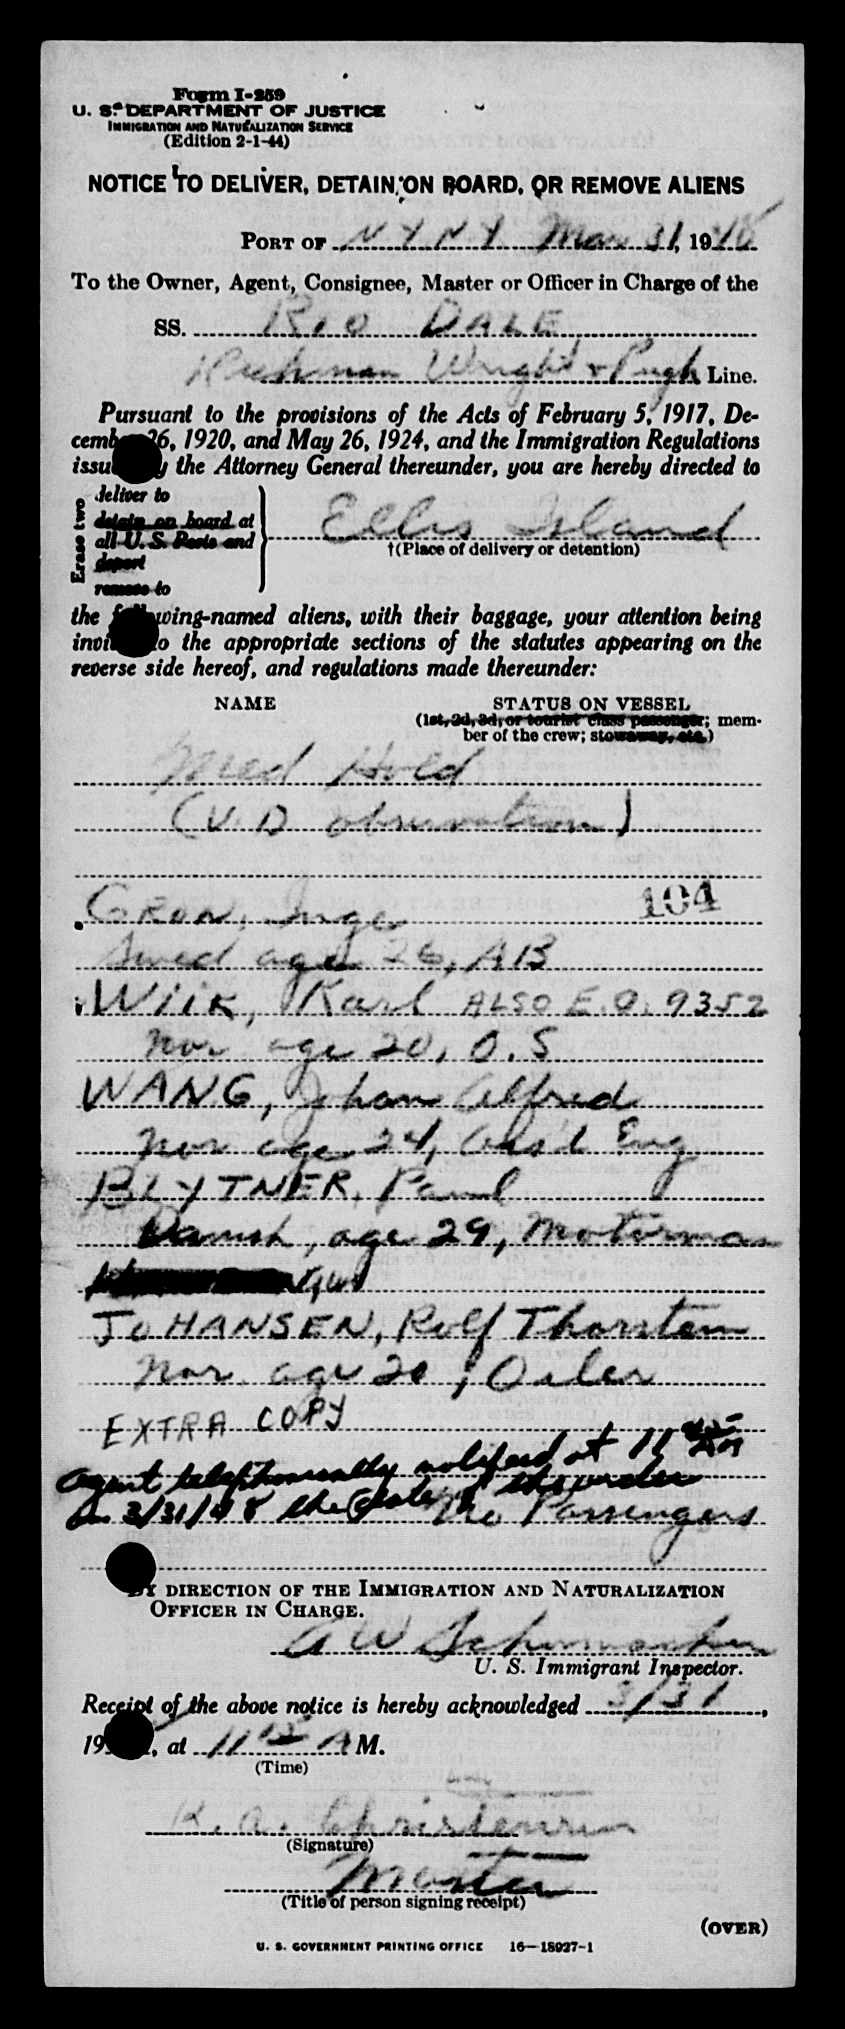 Form I-259
U. S. DEPARTMENT OF JUSTICE
IMMIGRATION AND NATURALIZATION SERVICE
(Edition 2-1-44)
NOTICE TO DELIVER, DETAIN ON BOARD, OR REMOVE ALIENS
PORT OF N Y N Y Mar 31, 1948
To the Owner, Agent, Consignee, Master or Officer in Charge of the
SS. RIO DALE
Wright & Pugh Line.
Pursuant to the provisions of the Acts of February 5, 1917, De-
cember 26, 1920, and May 26, 1924, and the Immigration Regulations
issued by the Attorney General thereunder, you are hereby directed to
Erase two
deliver to
detain on board at
all U. S. Ports and
deport
remove to
Ellis Island
†(Place of delivery or detention)
the following-named aliens, with their baggage, your attention being
invited to the appropriate sections of the statutes appearing on the
reverse side hereof, and regulations made thereunder:
NAME STATUS ON VESSEL
(1st, 2d, 3d, or tourist class passenger; mem-
ber of the crew; stowaway, etc.)
Med Hold
(V.D observation)
GRON, Inge 104
Swed age 26, AB
WIIK, Karl ALSO E.O. 9352
Nor age 20, O.S
WANG, Johan Alfred
Nor age 24, Ass't Eng
BLYTNER, Paul
Danish, age 29, Motorman
JOHANSEN, Rolf Thorstein
Nor. age 20, Oiler
EXTRA COPY
Agent telephonically notified at 11 AM
on 3/31/48 the date of this order
No Passengers
BY DIRECTION OF THE IMMIGRATION AND NATURALIZATION
OFFICER IN CHARGE.
A W Schumacher
U. S. Immigrant Inspector.
Receipt of the above notice is hereby acknowledged 3/31,
19, at 11 A M.
(Time)
K. A. Christensen
(Signature)
Master
(Title of person signing receipt)
(OVER)
U. S. GOVERNMENT PRINTING OFFICE 16—18027-1